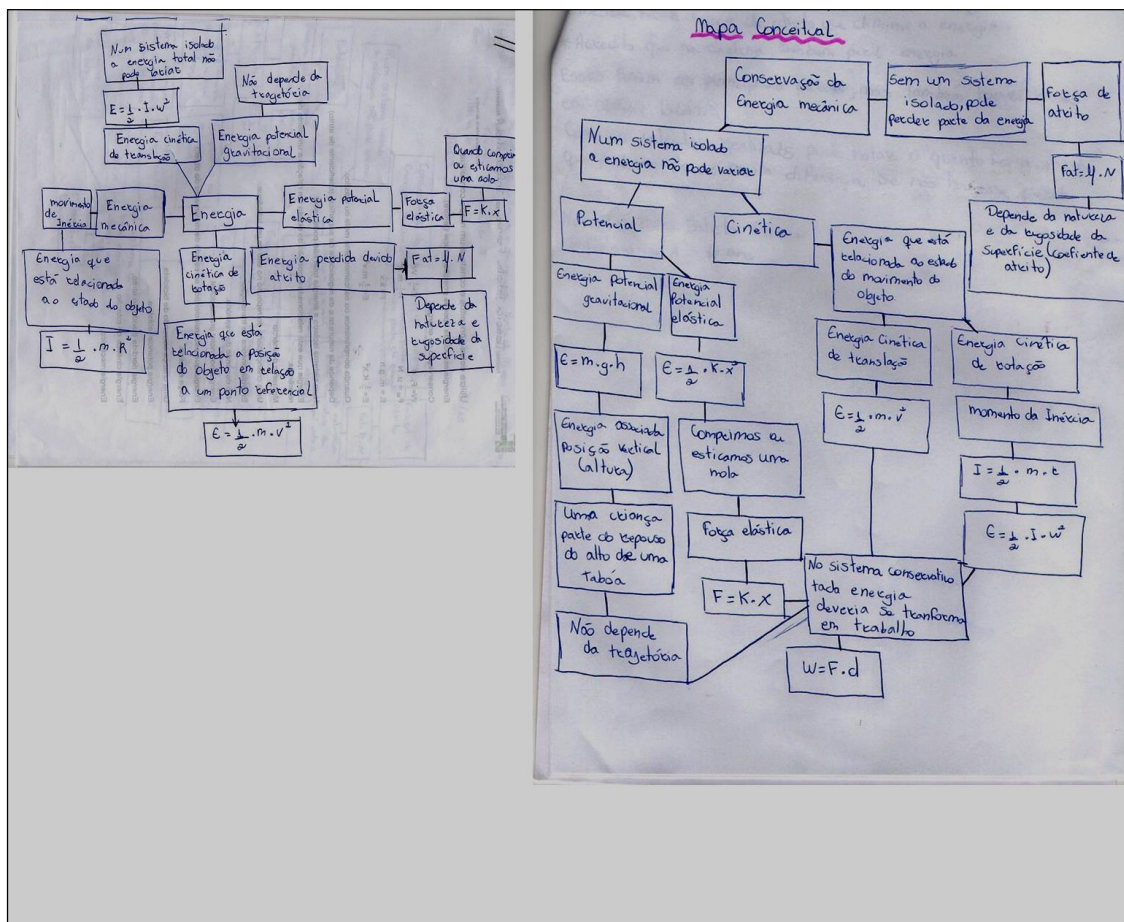 Num sistema isolado
a energia total não
pode variar
E = 1/2 . I . w²
Energia cinética
de translação
Não depende da
tragetória
Energia potencial
gravitacional
Quando comprim
ou esticamos
uma mola
movimento
de Inércia
Energia
mecânica
Energia
Energia potencial
elástica
Força
elástica
F = K . x
Energia que
está relacionada
ao estado do objeto
I = 1/2 . m . R²
Energia
cinética de
rotação
Energia perdida devido
atrito
Fat = μ . N
Depende da
natureza e
rugosidade da
superfície
Energia que está
relacionada a posição
do objeto em relação
a um ponto referencial
E = 1/2 . m . v²
Mapa Conceitual
Conservação da
Energia mecânica
Sem um sistema
isolado, pode
perder parte da energia
Força de
atrito
Fat = μ . N
Depende da natureza
e da rugosidade da
superfície (coefiente de
atrito)
Num sistema isolado
a energia não pode variar
Potencial
Cinética
Energia que está
relacionada ao estado
do movimento do
objeto.
Energia potencial
gravitacional
Energia
Potencial
elástica
Energia Cinética
de translação
Energia Cinética
de rotação
E = m . g . h
E = 1/2 . K . x²
E = 1/2 . m . v²
momento da Inércia
Energia associada
posição vertical
(altura)
Comprimos ou
esticamos uma
mola
I = 1/2 . m . r
E = 1/2 . I . w²
Uma criança
parte do repouso
do alto de uma
taboa
Força elástica
F = K . X
No sistema conservativo
toda energia
deveria se tranforma
em trabalho
Não depende
da trajetória
W = F . d